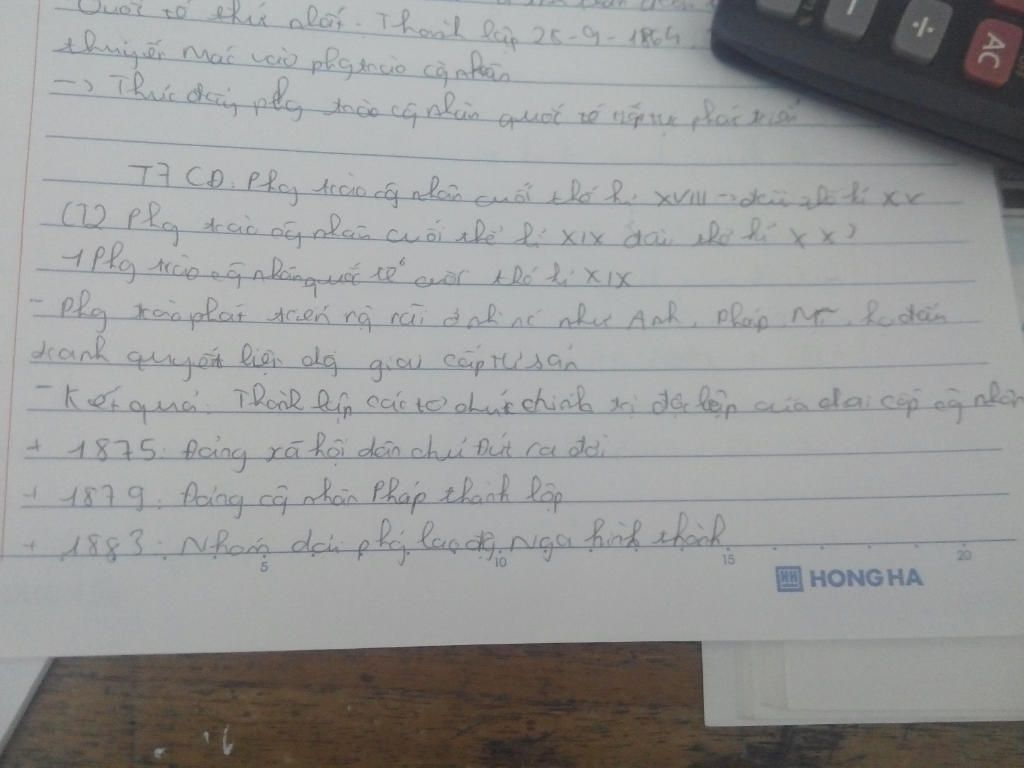 Quốc tế thứ nhất. Thành lập 25-9-1864.
thuyết Mác vào phg trào cg nhân
-> Thúc đẩy phg trào cg nhân quốc tế tiếp tục phát triển
T7 CĐ: Phg trào cg nhân cuối thế kỉ XVIII -> đầu thế kỉ XX
(T2 Phg trào cg nhân cuối thế kỉ XIX đầu thế kỉ XX)
1 Phg trào cg nhân quốc tế cuối thế kỉ XIX
- Phg trào phát triển rộng rãi ở nh nc như Anh, Pháp, Mĩ,
tranh quyết liệt giai cấp tư sản
- Kết quả: Thành lập các tổ chức chính trị độc lập của giai cấp cg nhân
+ 1875: Đảng xã hội dân chủ Đức ra đời
+ 1879: Đảng cg nhân Pháp thành lập
+ 1883: Nhóm giải phóng lao động Nga hình thành
5 10 15 20
HH HONG HA
÷
AC